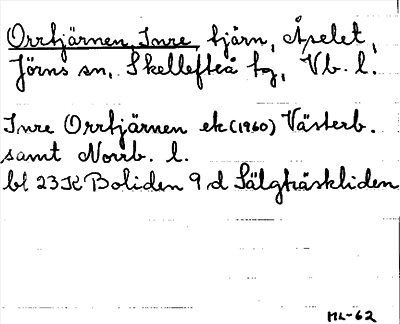 Orrtjärnen, Inre tjärn, Åselet,
Jörns sn, Skellefteå tg, Vb. l.
Inre Orrtjärnen ek (1960) Västerb.
samt Norrb. l.
bl 23K Boliden 9 d Sälgträskliden
ML-62